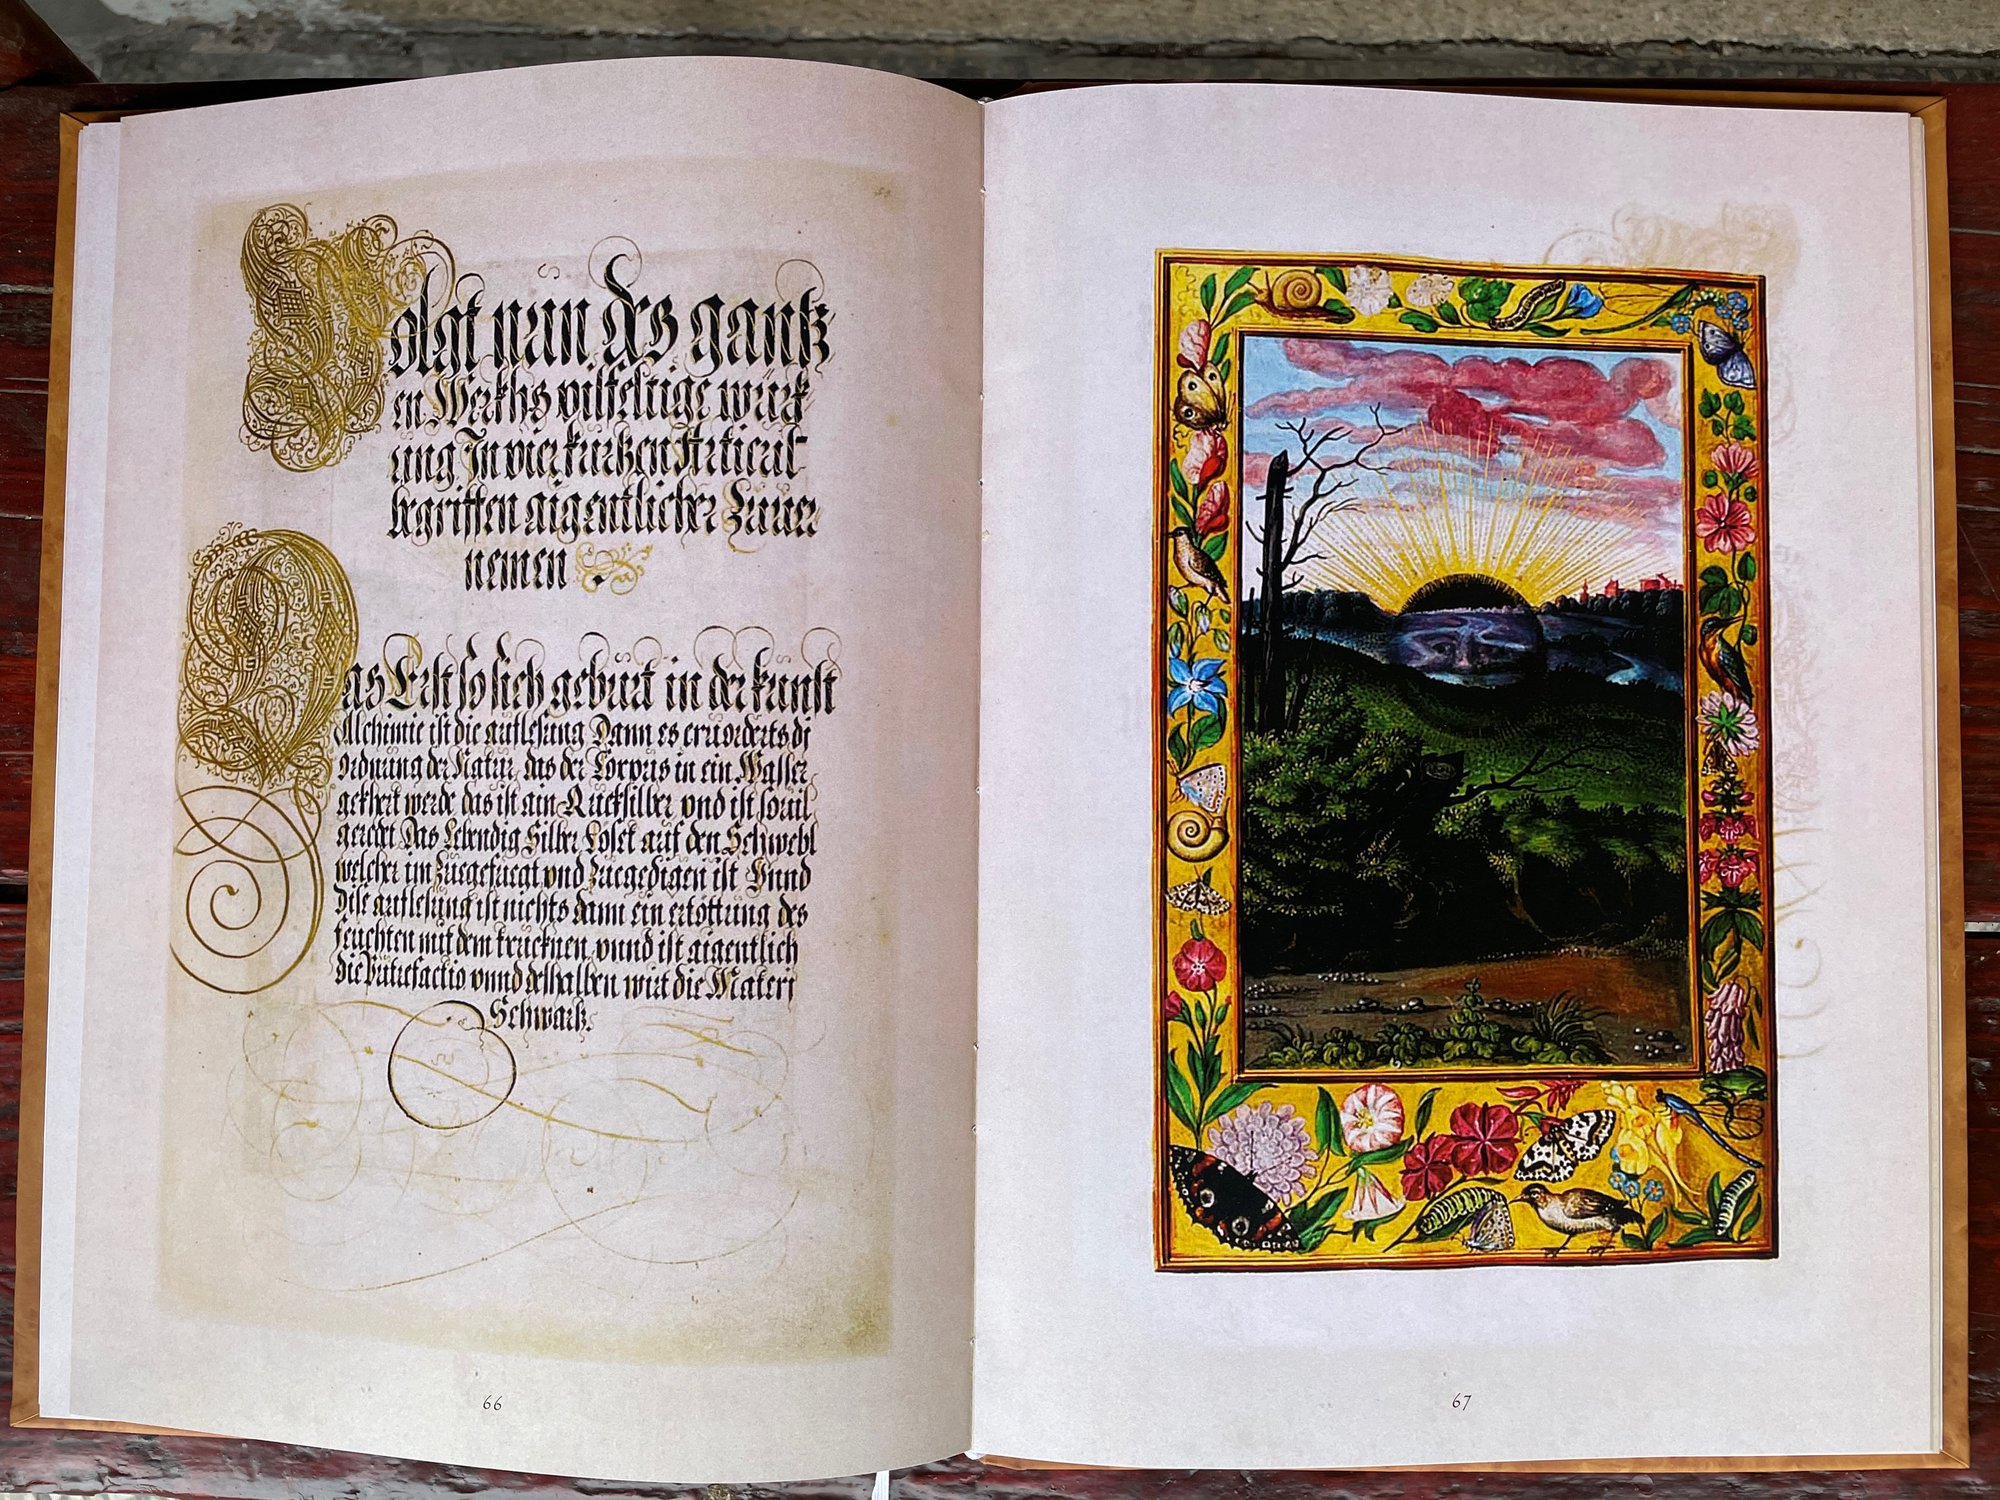 Volgt nun des gantz
en Werkhs vilfeltige würk
ung In vier kurtzen Articul
begriffen aigentlicher Züuer
nemen
Das Erst so sich gebürt in der kunst
Alchimie ist die auflesung Dann es eruorderts di
Ordnung der Natur, das der Corpus in ein Wasser
gekhert werde das ist ain Kücksilber vnd ist souil
geredt Das Lebendig Silber Loset auf den Schwebl
welcher im Zuegefuegt vnd Zuegedigen ist Vnnd
Dise auflesung ist nichts dann ein ertöttung des
feuchten mit dem trucknen, vnnd ist aigentlich
die Putrefactio vnnd deshalben wirt die Materj
Schwartz.
66
67